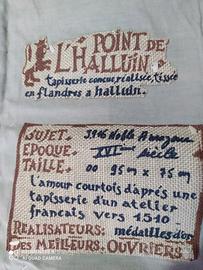 L'H POINT DE
HALLUIN
tapisserie conçue, réalisée, tissée
en flandres a halluin.
SUJET. 3916 Noble Amazone
EPOQUE. XVIᵉ siècle
TAILLE. 00 95 m x 75 m
l'amour courtois d'aprés une
tapisserie d'un atelier
francais vers 1510
REALISATEURS: médailles d'or
DES MEILLEURS. OUVRIERS
QUAD CAMERA